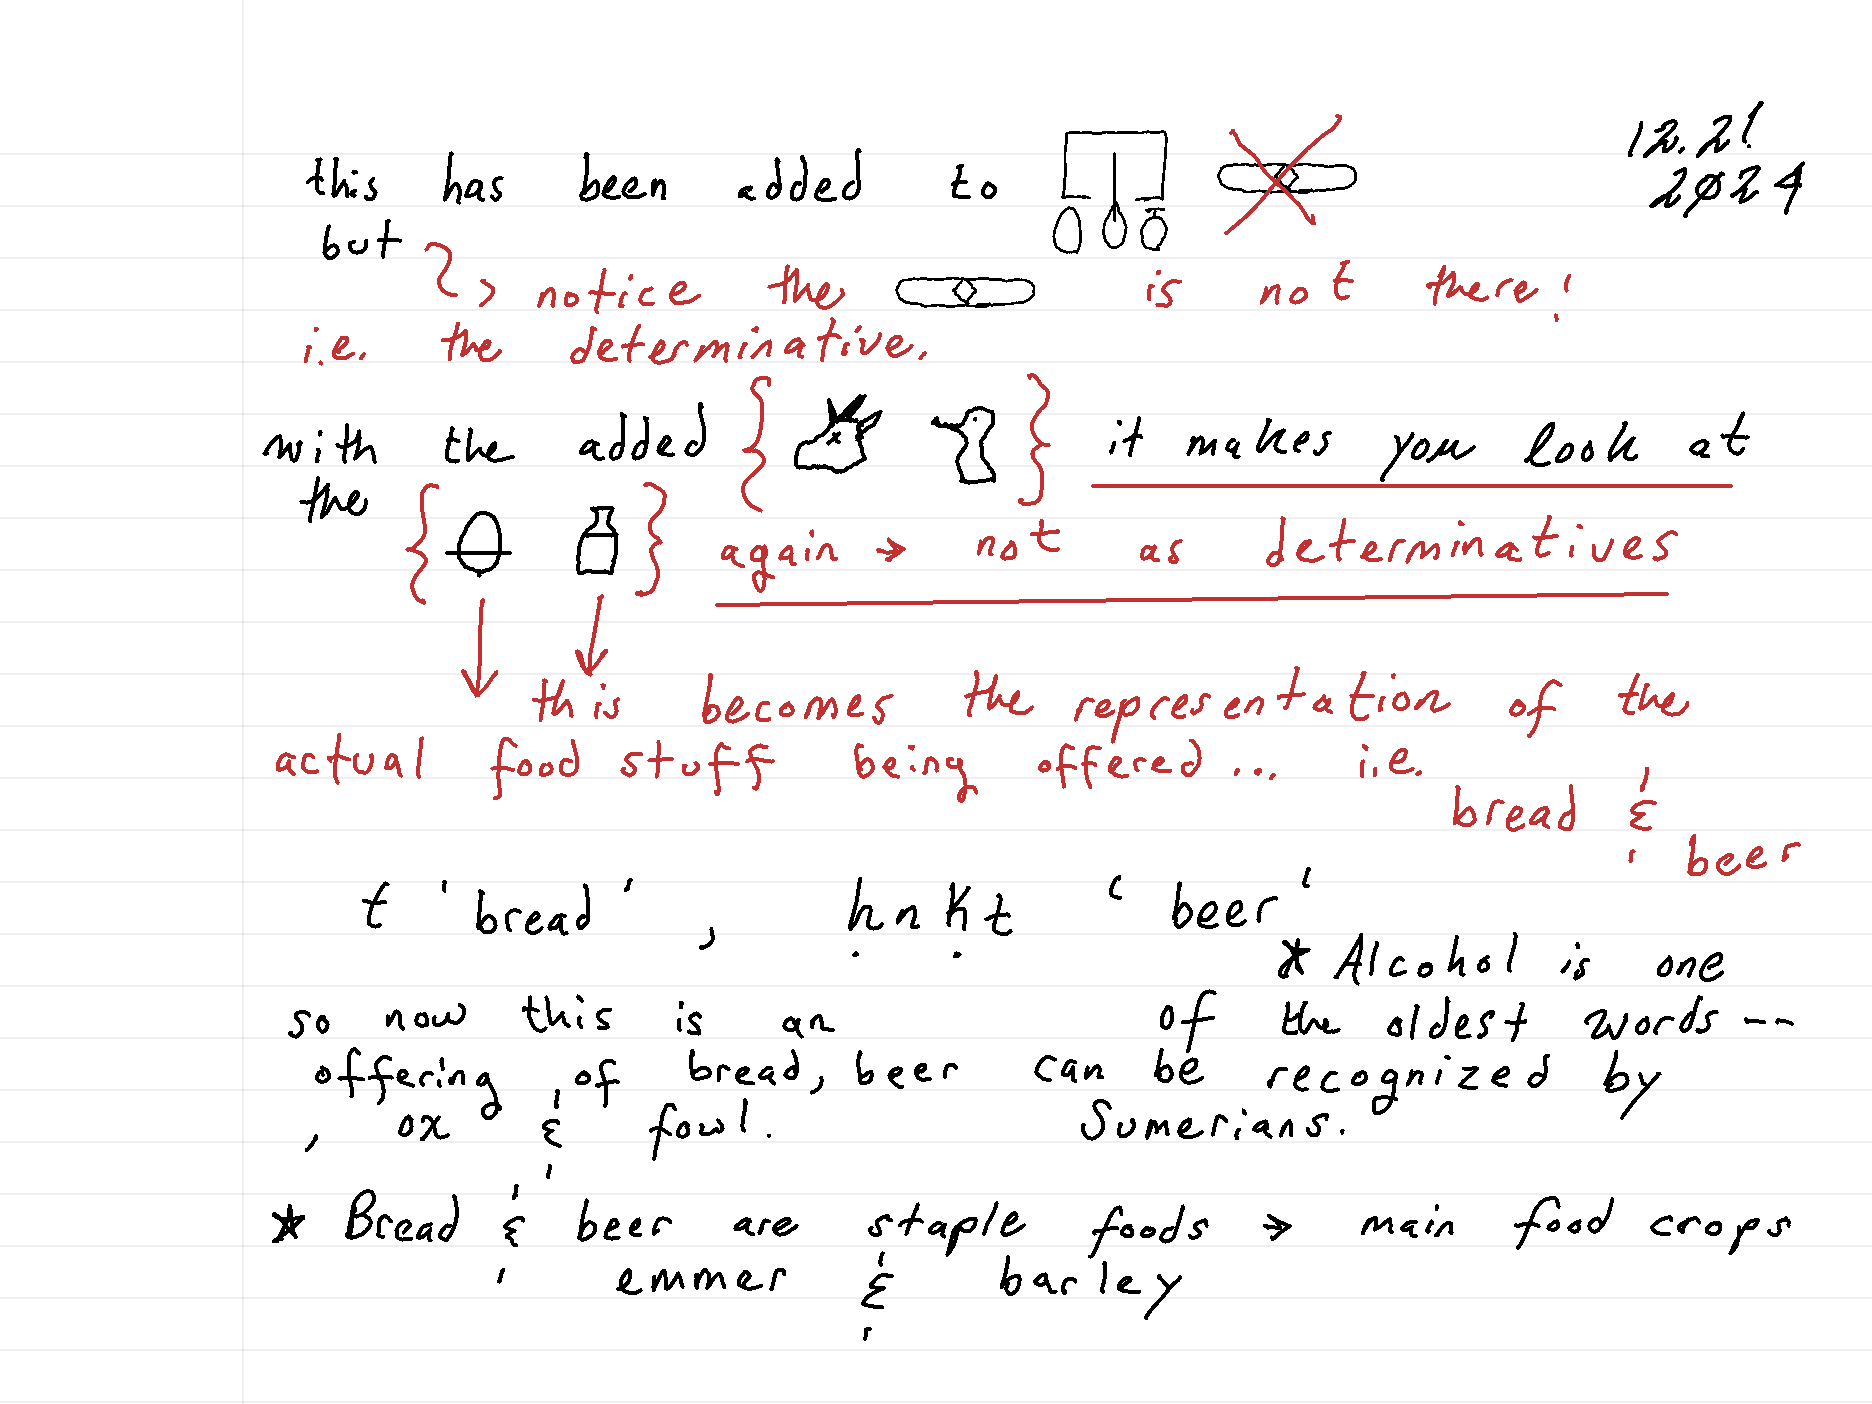 12.21
2024
this has been added to
but
notice the is not there!
i.e. the determinative.
with the added { } it makes you look at
the { } again → not as determinatives
this becomes the representation of the
actual food stuff being offered... i.e.
bread &
beer
t 'bread', ḥnḳt 'beer'
* Alcohol is one
so now this is an
of the oldest words --
offering of bread, beer
can be recognized by
, ox & fowl.
Sumerians.
* Bread & beer are staple foods → main food crops
emmer & barley